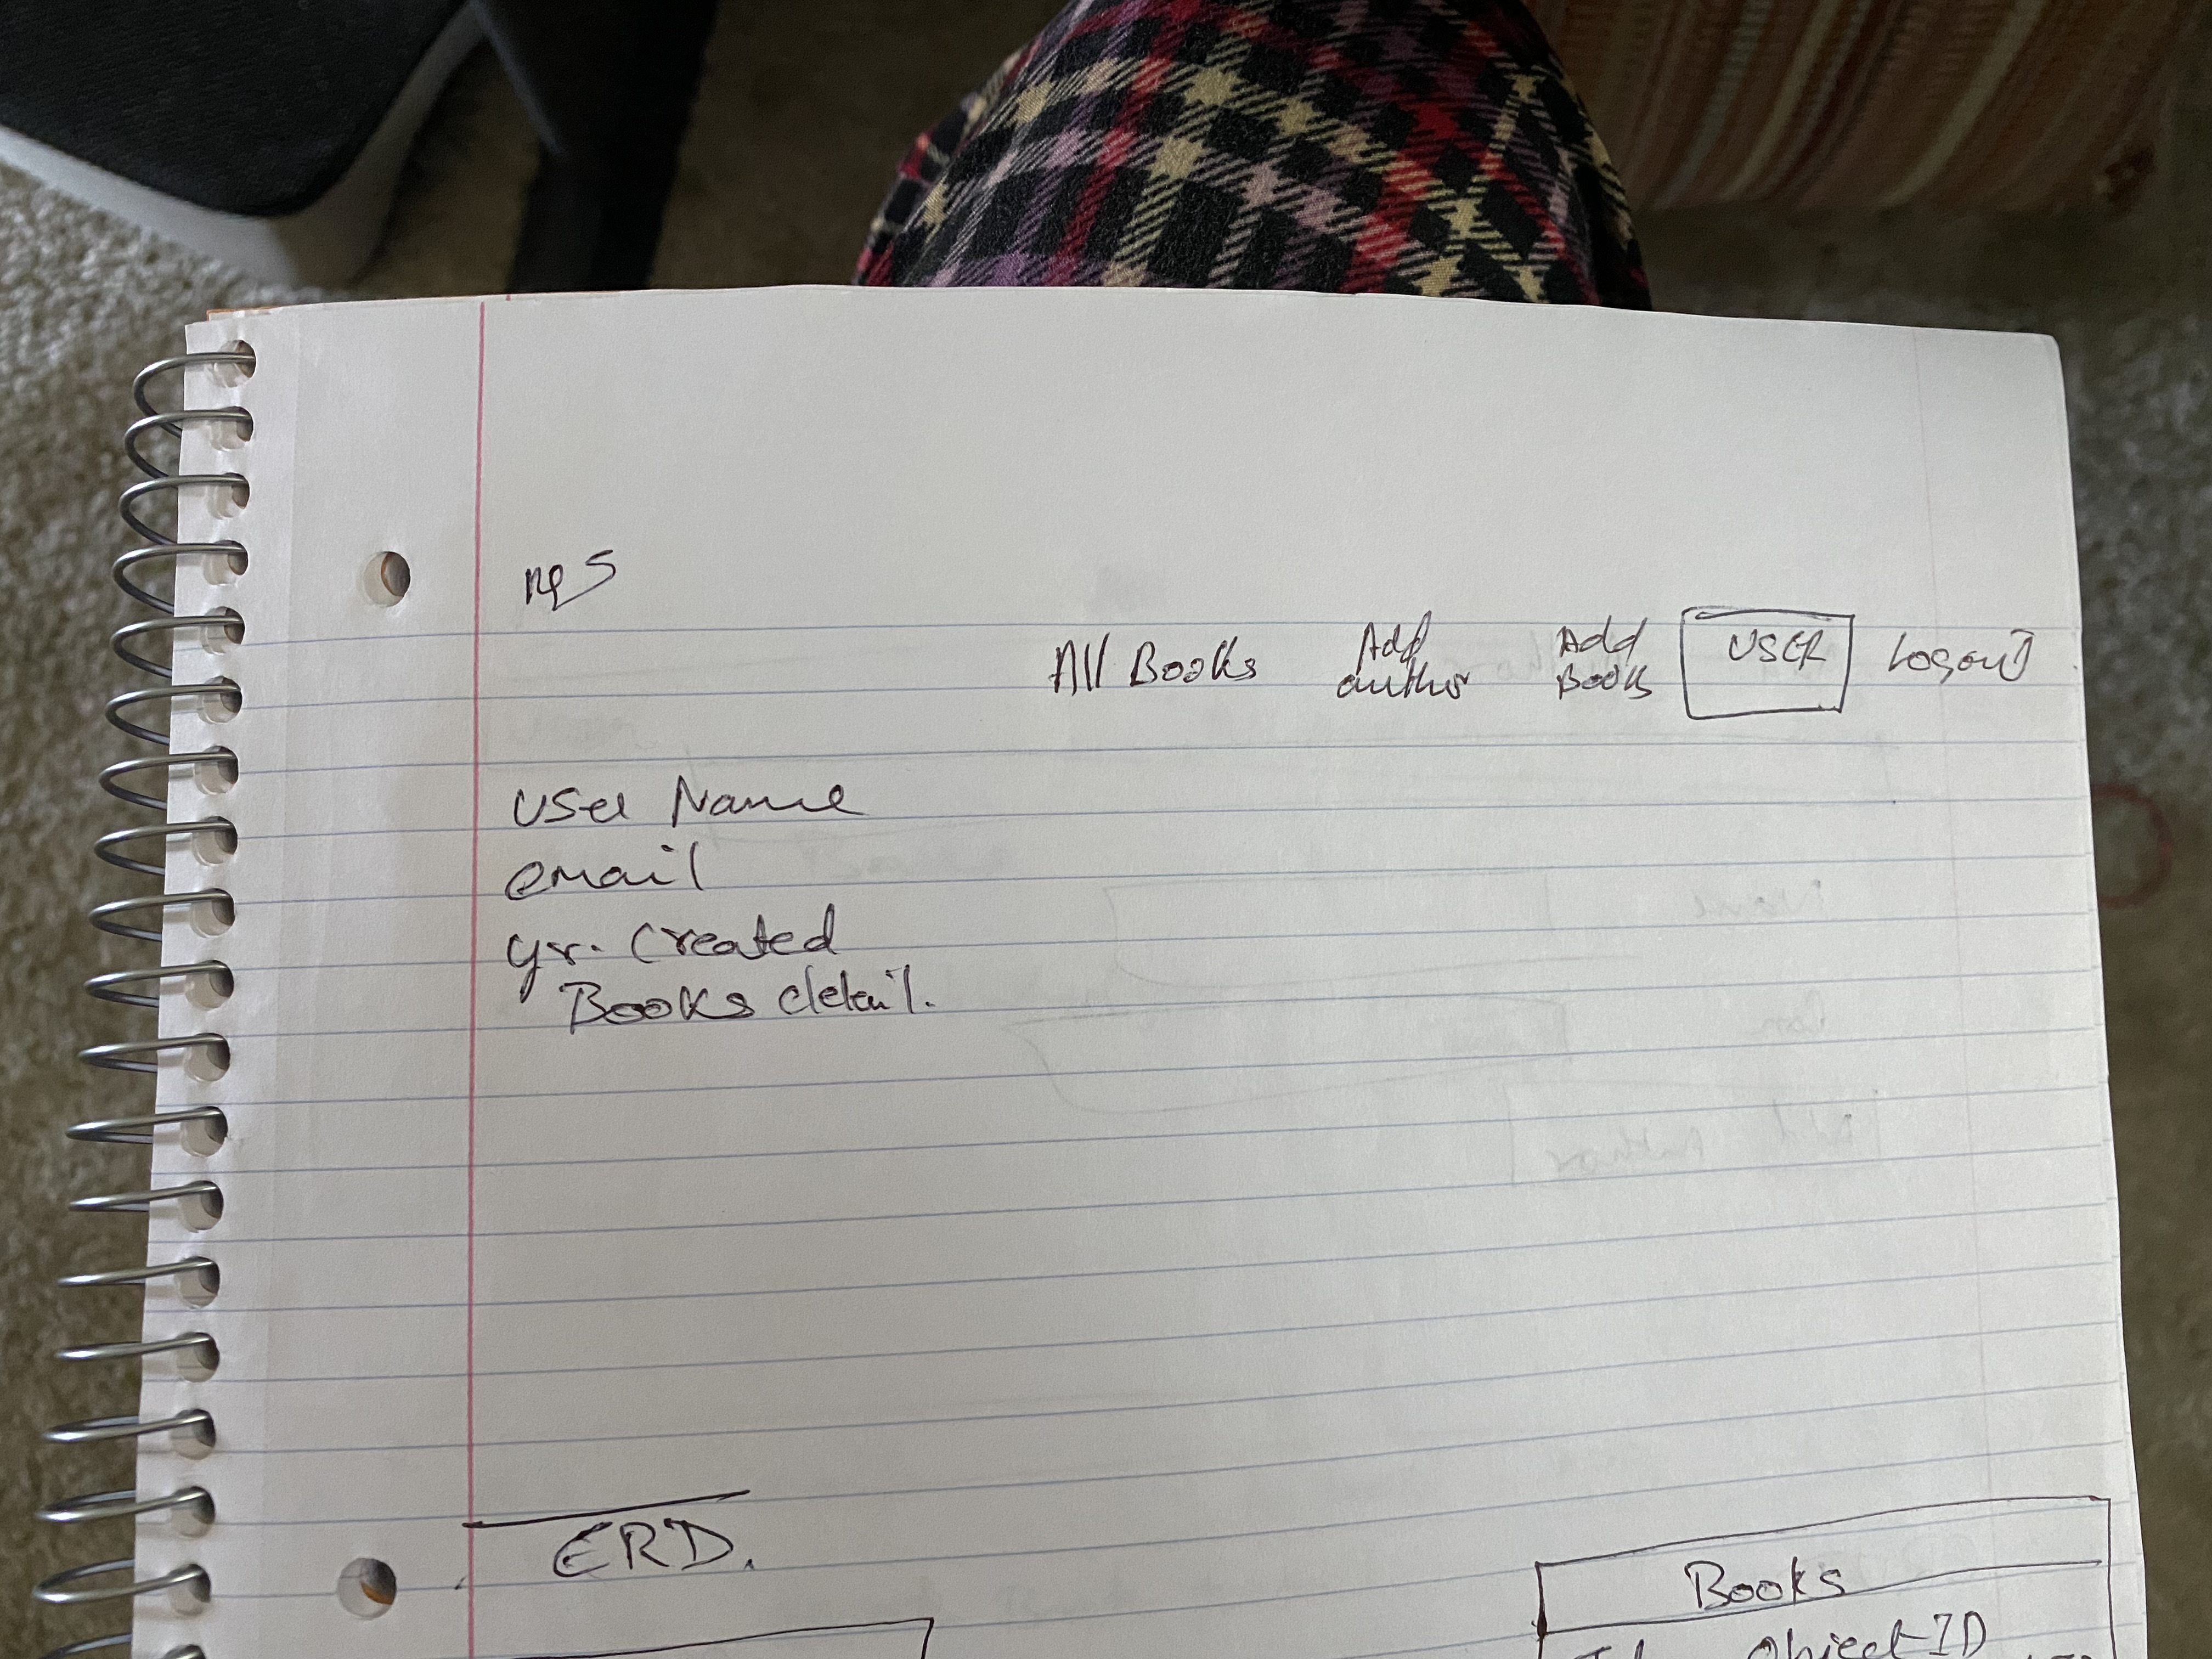 All Books Add author Add Book USER Logout
User Name
email
yr. Created
Books detail.
ERD.
Books
Object ID